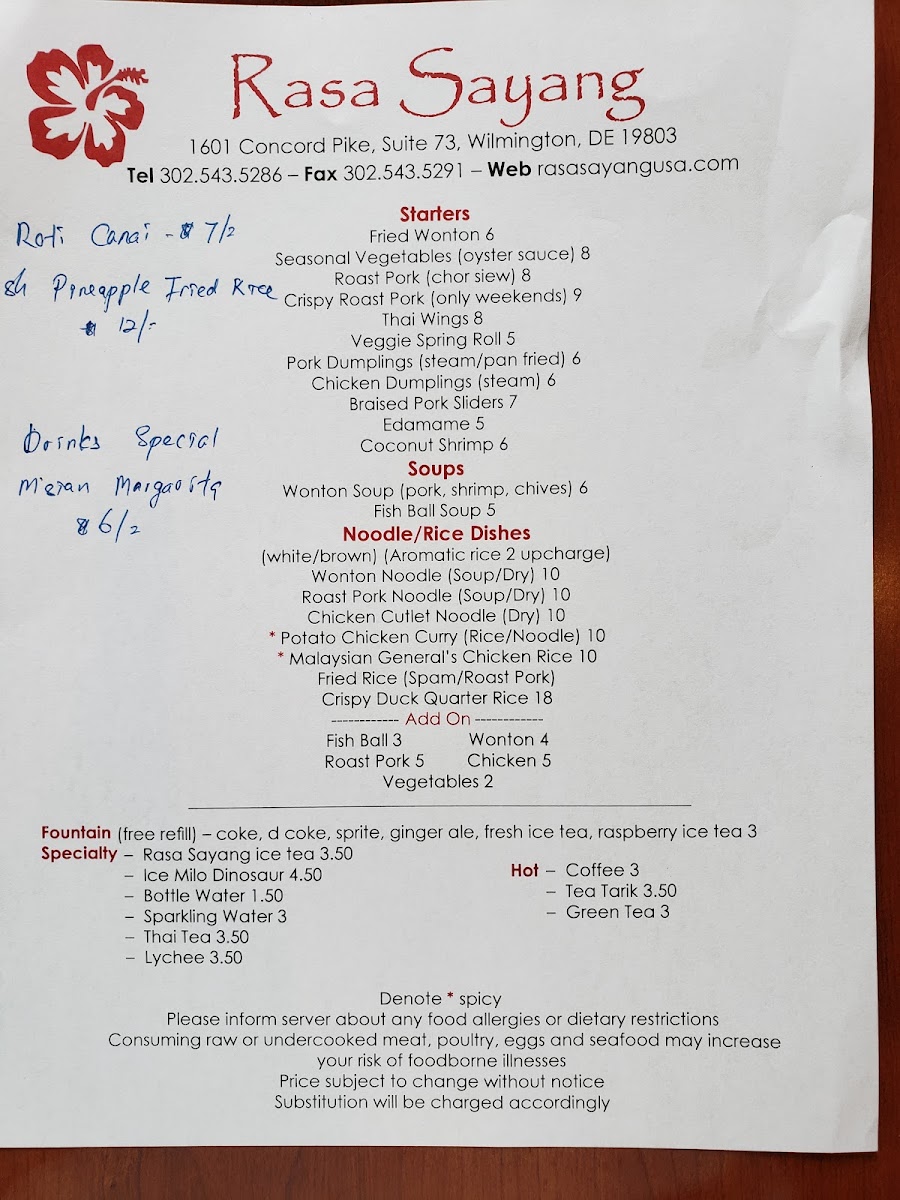 Rasa Sayang
1601 Concord Pike, Suite 73, Wilmington, DE 19803
Tel 302.543.5286 – Fax 302.543.5291 – Web rasasayangusa.com
Roti Canai - $ 7/-
Pineapple Fried Rice
$ 12/-
Drinks Special
$6/-
Starters
Fried Wonton 6
Seasonal Vegetables (oyster sauce) 8
Roast Pork (chor siew) 8
Crispy Roast Pork (only weekends) 9
Thai Wings 8
Veggie Spring Roll 5
Pork Dumplings (steam/pan fried) 6
Chicken Dumplings (steam) 6
Braised Pork Sliders 7
Edamame 5
Coconut Shrimp 6
Soups
Wonton Soup (pork, shrimp, chives) 6
Fish Ball Soup 5
Noodle/Rice Dishes
(white/brown) (Aromatic rice 2 upcharge)
Wonton Noodle (Soup/Dry) 10
Roast Pork Noodle (Soup/Dry) 10
Chicken Cutlet Noodle (Dry) 10
* Potato Chicken Curry (Rice/Noodle) 10
* Malaysian General's Chicken Rice 10
Fried Rice (Spam/Roast Pork)
Crispy Duck Quarter Rice 18
------------ Add On ------------
Fish Ball 3 Wonton 4
Roast Pork 5 Chicken 5
Vegetables 2
Fountain (free refill) – coke, d coke, sprite, ginger ale, fresh ice tea, raspberry ice tea 3
Specialty – Rasa Sayang ice tea 3.50
– Ice Milo Dinosaur 4.50
– Bottle Water 1.50
– Sparkling Water 3
– Thai Tea 3.50
– Lychee 3.50
Hot – Coffee 3
– Tea Tarik 3.50
– Green Tea 3
Denote * spicy
Please inform server about any food allergies or dietary restrictions
Consuming raw or undercooked meat, poultry, eggs and seafood may increase
your risk of foodborne illnesses
Price subject to change without notice
Substitution will be charged accordingly